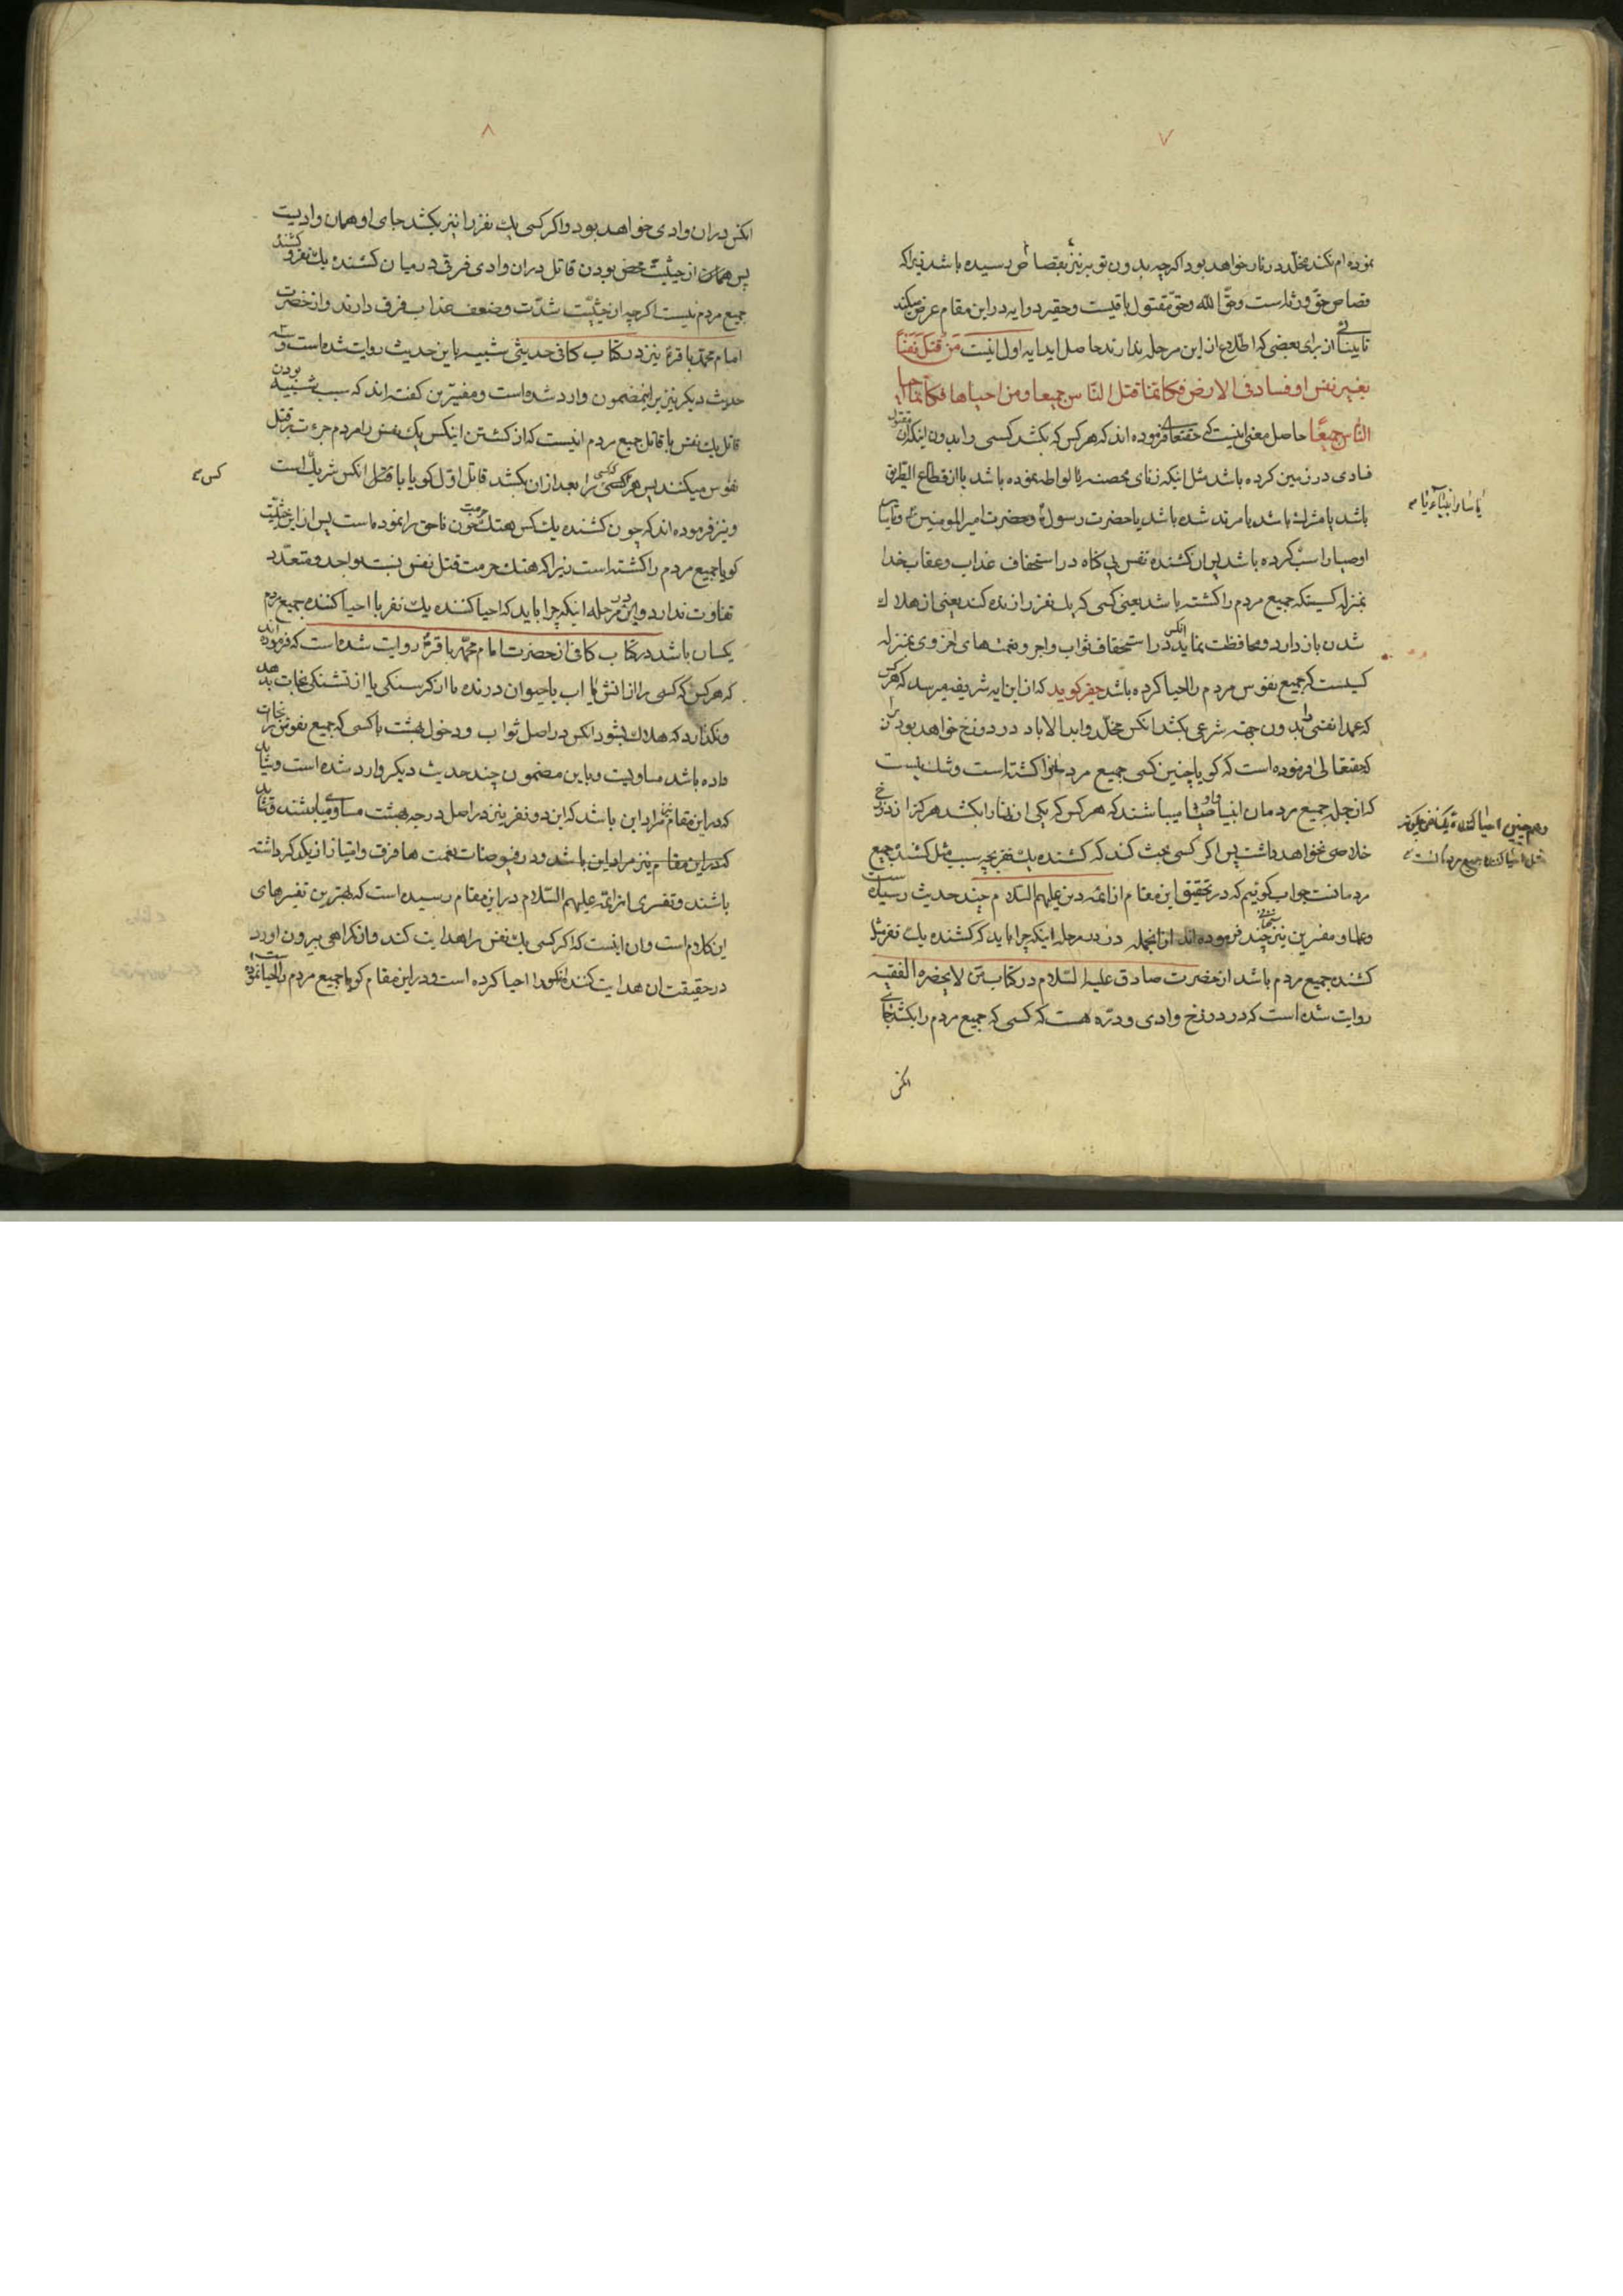 ۷
نموده ام نکند مخلّد در نار خواهد بود اکرچه بدون توبه نیز بقصاص رسیده باشد زیراکه
قصاص حقّ ورثه است وحقّ الله وحقّ مقتول باقیست وحقیر دو ایه در این مقام عرض میکند
تا بینائی از برای بعضی که اطلاع از این مرحله ندارند حاصل اید ایه اول اینست مَن قَتَلَ نَفسًا
بغیر نفس او فساد فی الارض فکانّما قتل النّاس جمیعا ومن احیاها فکانّما احیا
النّاس جمیعًا حاصل معنی اینست که حقتعالی فرموده اند که هرکس که بکشد کسی را بدون اینکه ان مقتول
فسادی در زمین کرده باشد مثل اینکه زنای محصنه یا لواطه نموده باشد یا از قطاع الطریق
باشد یا مشرك باشد یا مرتد شده باشد یا حضرت رسول ص وحضرت امیر المومنین ع وباقی
اوصیا را سبّ کرده باشد پس ان کشنده نفس بی کناه در استحقاف عذاب وعقاب خدا
بمنزله کسیستکه جمیع مردم را کشته باشد یعنی کسی که یك نفر را زنده کند یعنی از هلاك
شدن باز دارد ومحافظت نماید انکس در استحقاف ثواب واجر ونعمت های اخروی بمنزله
کسیست که جمیع نفوس مردم را احیا کرده باشد حقیر کوید که از این ایه شریفه میرسد که هرکس
که عمدا نفسی را بدون جهه شرعی بکشد انکس مخلّد وابد الاباد در دوزخ خواهد بود زیرا
که حقتعالی فرموده است که کویا چنین کسی جمیع مردم را کشته است وشك نیست
که از جمله جمیع مردمان انبیا واوصیا میباشند که هرکس که یکی از انها را بکشد هرکز از دوزخ
خلاصی نخواهد داشت پس اکر کسی بحث کند که کشنده یك نفر بچه سبب مثل کشنده جمیع
مردمانست جواب کوئیم که در تحقیق این مقام از ائمّه دین علیهم السّلام چند حدیث رسیده است
وعلما ومفسرین نیز سخنانی چند فرموده اند از انجمله در مرحله اینکه چرا باید که کشنده یك نفر مثل
کشنده جمیع مردم باشد از حضرت صادق علیه السّلام در کتاب من لا یحضره الفقیه
روایت شده است که در دوزخ وادی ودرّه هست که کسی که جمیع مردم را بکشد جای
انکس
یا سایر انبیاء یا
وهم چنین احیا کننده یکنفس چکونه
مثل احیا کننده جمیع مردمانست
۸
انکس در ان وادی خواهد بود واکر کسی یك نفر را نیز بکشد جای او همان وادیست
پس از حیثیّت محض بودن قاتل در ان وادی فرقی در میان کشنده یك نفر و کشنده
جمیع مردم نیست اکرچه از حیثیّت شدّت وضعف عذاب فرق دارند واز حضرت
امام محمّد باقر ع نیز در کتاب کافی حدیثی شبیه باین حدیث روایت شده است وسه
حدیث دیکر نیز براین مضمون وارد شده است ومفسّرین کفته اند که سبب شبیه بودن
قاتل یك نفس با قاتل جمیع مردم اینست که از کشتن اینکس یك نفس را مردم جرءت بر قتل
نفوس میکنند پس هرکه کسی را بعد از ان بکشد قاتل اوّل کویا با قتل انکس شریك است
ونیز فرموده اند که چون کشنده یك کس هتك حرمت خون ناحق را نموده است پس از این حیثیّت
کویا جمیع مردم را کشته است زیراکه هتك حرمت قتل نفس نسبت بواحد ومتعدّد
تفاوت ندارد ودر این مرحله اینکه چرا باید که احیا کننده یك نفر با احیا کننده جمیع مردم
یکسان باشد در کتاب کافی از حضرت امام محمّد باقر ع روایت شده است که فرموده اند
که هرکس که کسی را از اتش یا اب یا حیوان درنده یا از کرسنکی یا از تشنکی نجات بدهد
ونکذارد که هلاك بشود انکس در اصل ثواب ودخول بهشت با کسی که جمیع نفوس را نجات
داده باشد مساویست وباین مضمون چند حدیث دیکر وارد شده است وشاید
که در این مقام نیز مراد این باشد که این دو نفر نیز در اصل درجه بهشت مساوی میباشند وشاید
که در این مقام نیز مراد این باشد ودر فیوضات ونعمت ها فرق وامتیاز از یکدیکر داشته
باشند وتفسیری از ائمّه علیهم السّلام در این مقام رسیده است که بهترین تفسیرهای
این کلام است وان اینست که اکر کسی یك نفس را هدایت کند واز کمراهی بیرون اورد
در حقیقت ان هدایت کننده انکس را احیا کرده است ودر این مقام کویا جمیع مردم را احیا نموده است
کس